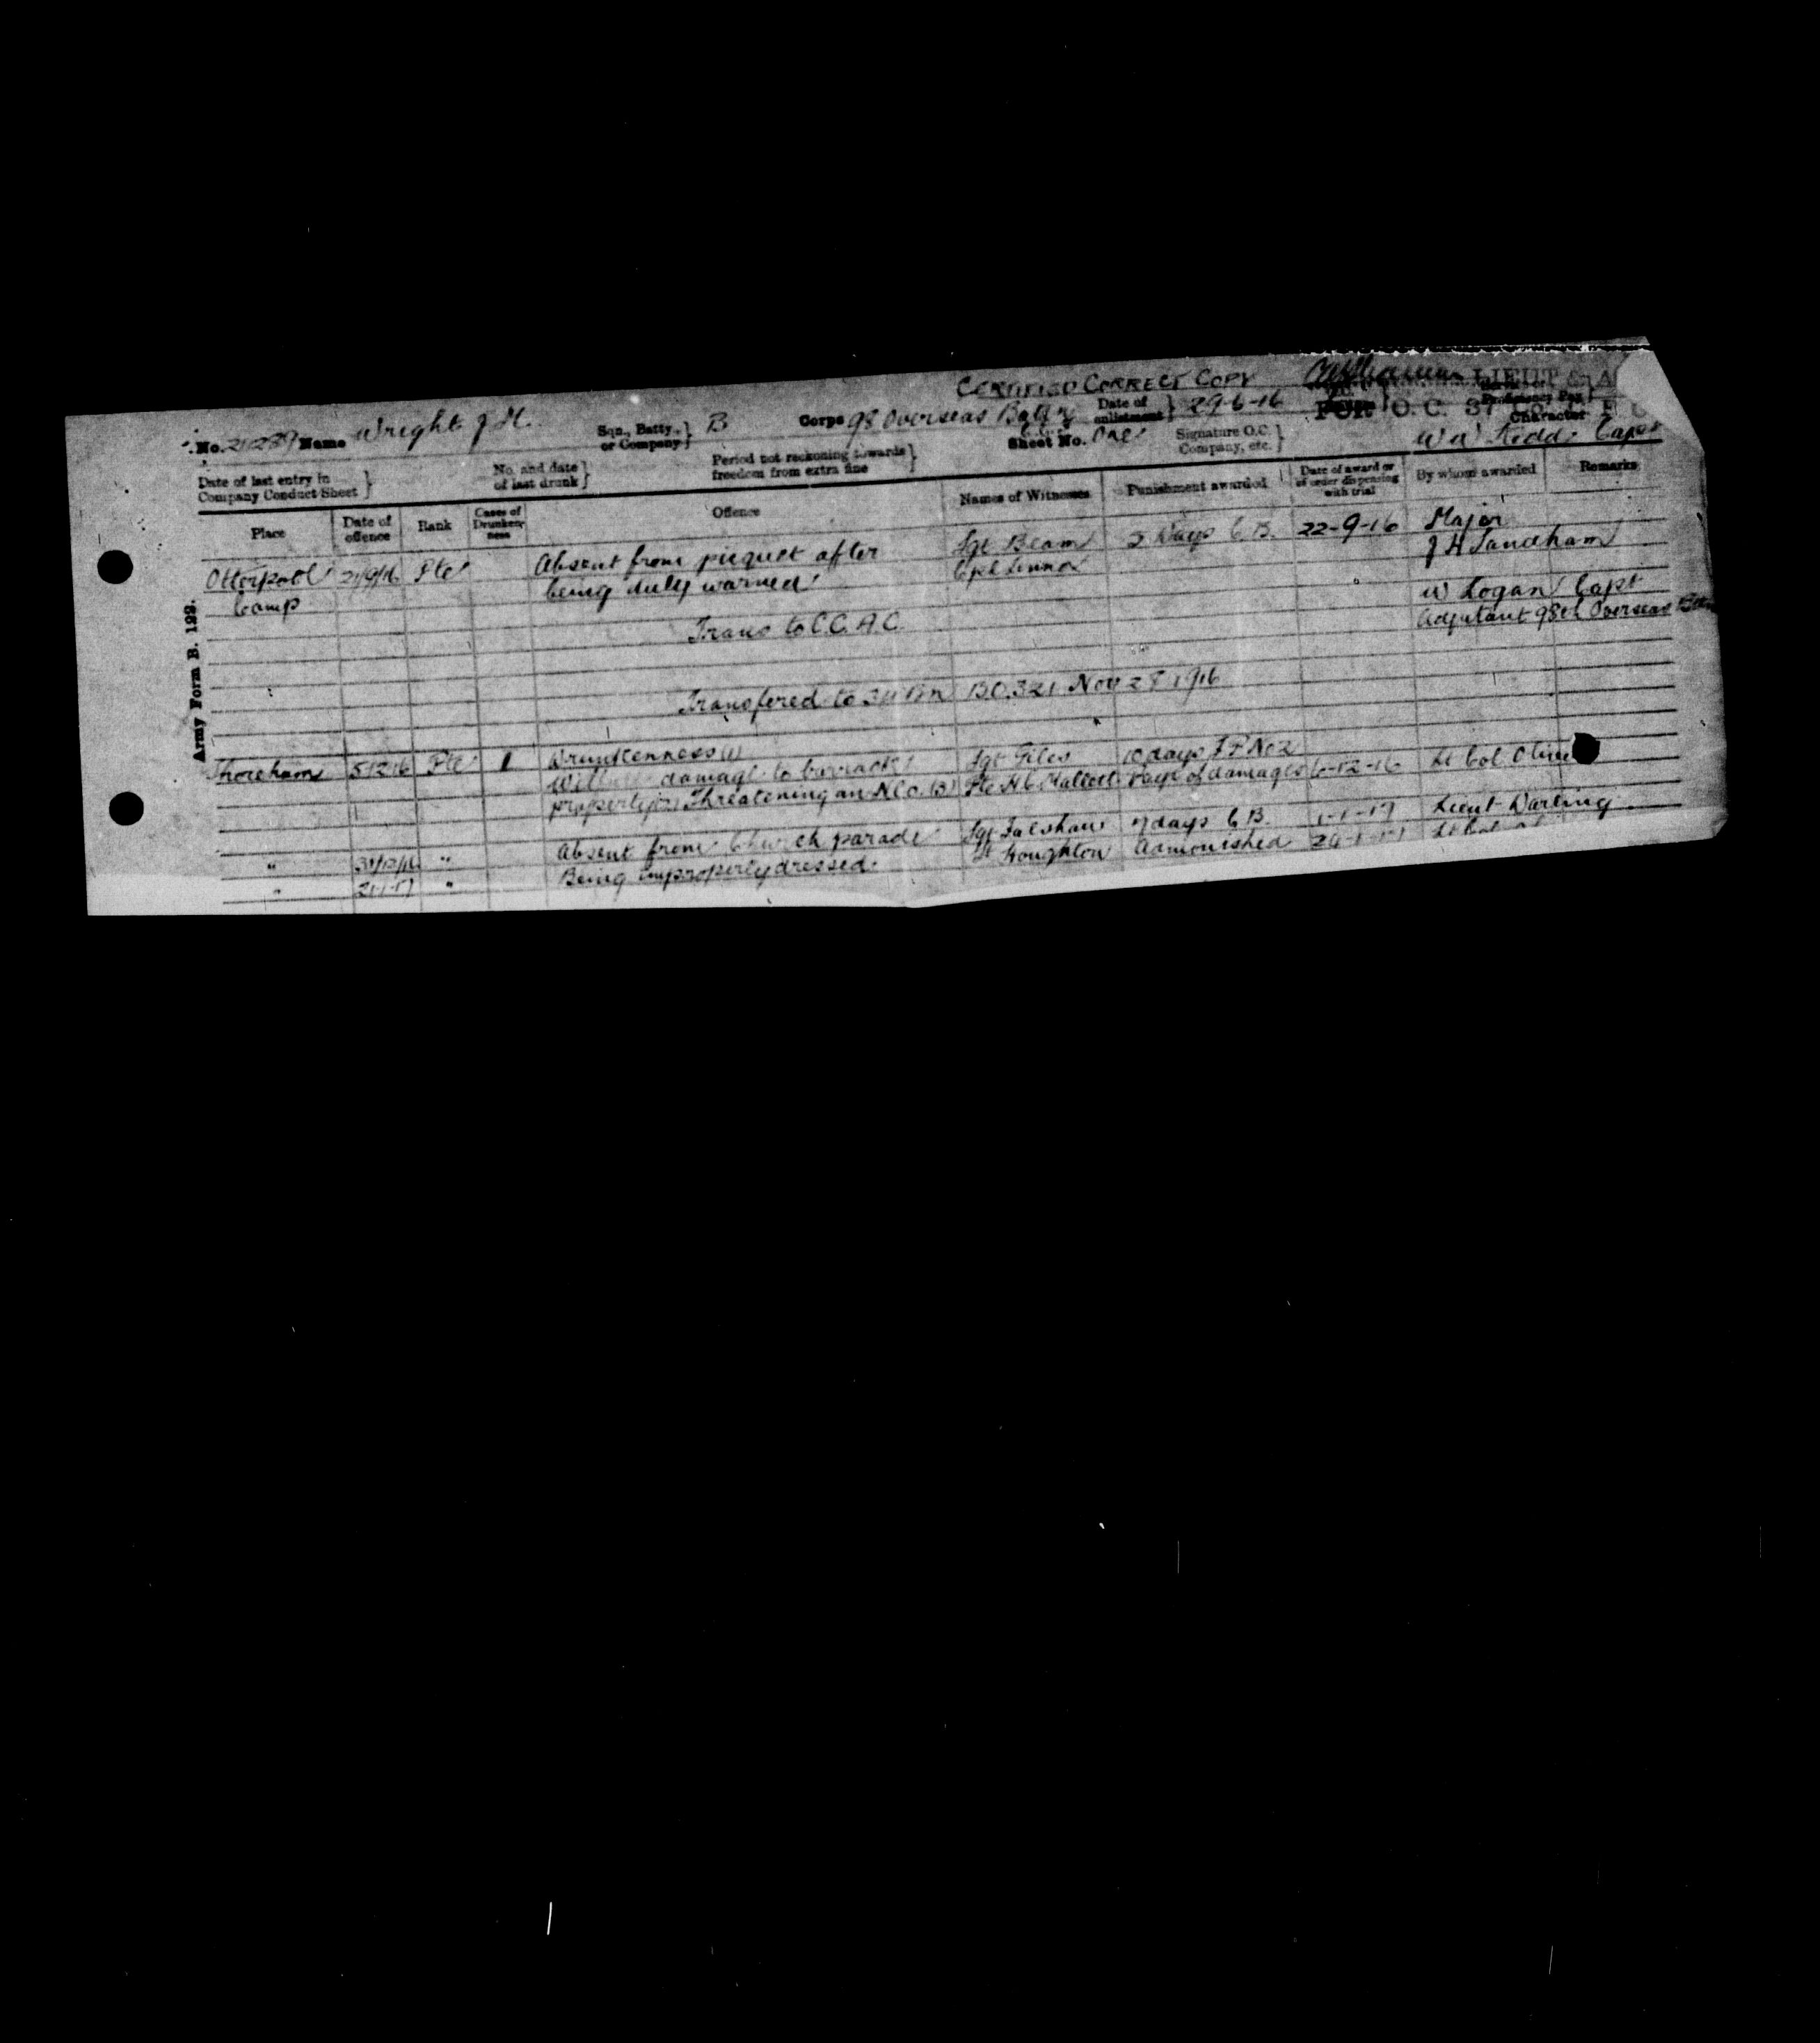 CERTIFIED CORRECT COPY
LIEUT & A
FOR O.C. 
No. Name Wright J. H. Sqn., Batty., or Company} B Corps 98 Overseas Battn Date of enlistment} 29-6-16 Proficiency Pay Character
Sheet No. One Signature O.C. Company, etc.} W W Kidd Capt
Date of last entry in Company Conduct Sheet} No. and date of last drunk} Period not reckoning towards freedom from extra fine}
Place Date of offence Rank Cases of Drunkenness Offence Names of Witnesses Punishment awarded Date of award or of order dispensing with trial By whom awarded Remarks
Otterpool 21/9/16 Pte Absent from picquet after Sgt Beam Days C.B. 22-9-16 Major
Camp being duly warned Cpl Lennox J H
W Logan Capt
Trans to C.C.A.C. Adjutant 98th Overseas Battn
Transfered to Bn B.O. 321 Nov 28 1916
Shoreham 5-12-16 Pte 1 Drunkenness (1) Sgt Giles 10 days F.P. No 2
damage to barrack Pte H.C. Mallett Pays of damages 6-12-16 Lt Col
property (2) Threatening an N.C.O. (3)
" 31/12/16 " Absent from Church parade Sgt 7 days C.B. 1-1-17 Lieut Darling
" 21-1-17 " Being improperly dressed. Houghton Admonished Lt Col
Army Form B. 122.